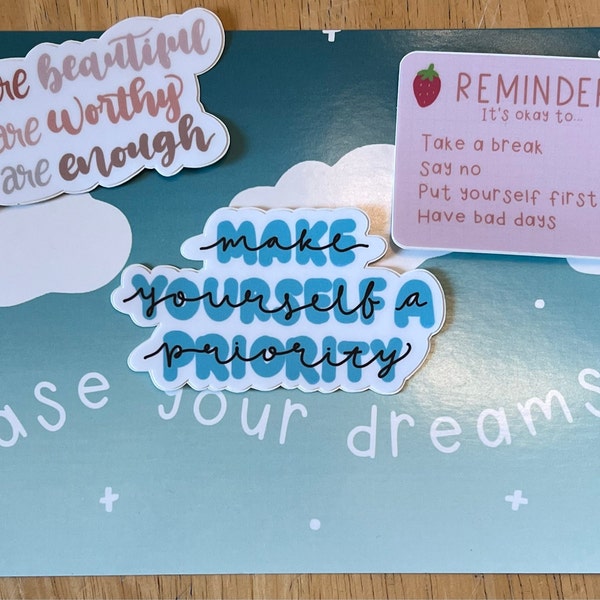 are beautiful
are worthy
are enough
REMINDER
It's okay to...
Take a break
Say no
Put yourself first
Have bad days
make
yourself a
priority
ase your dreams